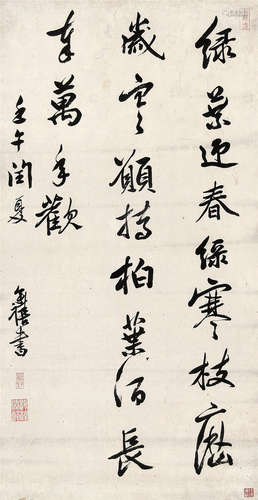 绿葉迎春綠寒枝歷
歲寒願持柏葉酒長
奉萬年歡
壬午閏夏
書